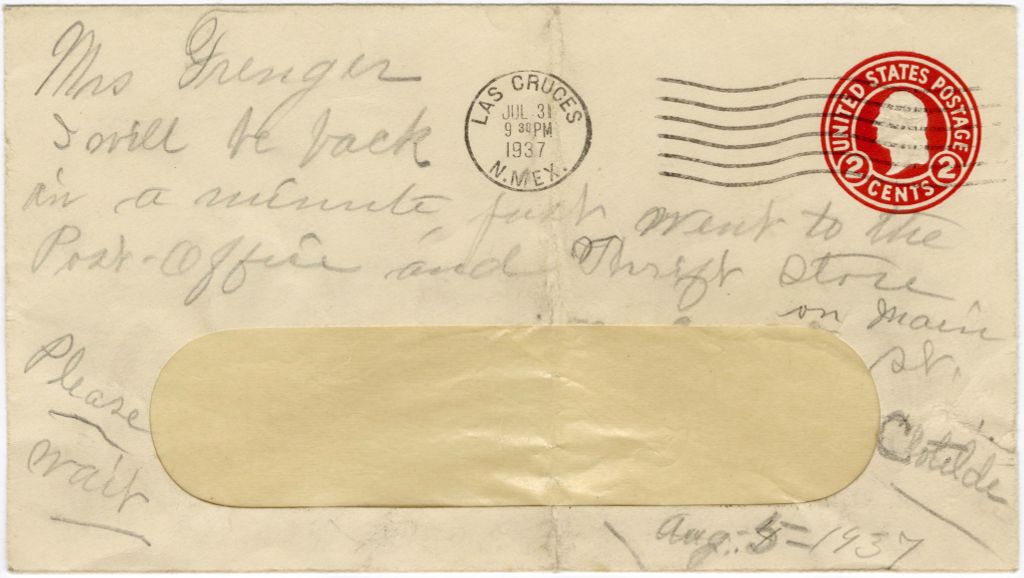 Mrs Frenger
I will be back
in a minute, just went to the
Post-Office and Thrift Store
on Main
St.
Please
wait
Clotilde
Aug. 5-1937
LAS CRUCES
JUL 31
9 30 PM
1937
N. MEX.
UNITED STATES POSTAGE
2 CENTS 2